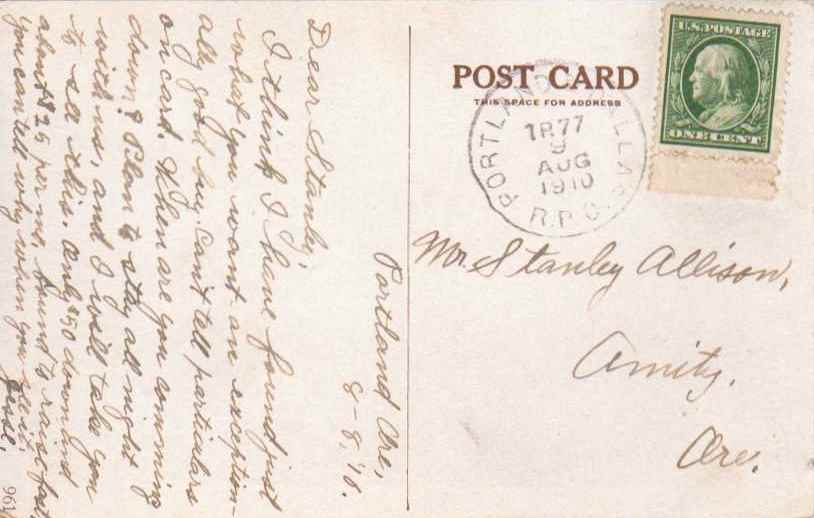 Portland Ore,
8-8,'10.
Dear Stanley,
I think I have found just
what you want, an exception-
ally good buy. Can't tell particulars
on card. When are you comming
down? Plan to stay all night
with me, and I will take you
to see this. Only $50 down and
about $25 per mo, bound to raise fast
you can tell why when you see it.
POST CARD
THIS SPACE FOR ADDRESS
PORTLAND
TR.77
9
AUG
1910
R.P.O.
U.S. POSTAGE
ONE CENT
Mr. Stanley Allison,
Amity,
Ore.
961